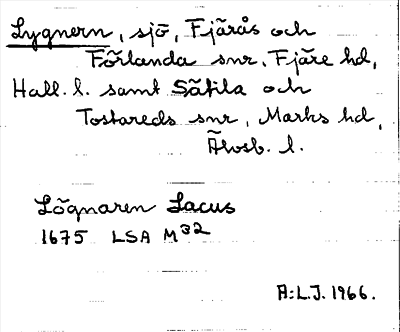 Lygnern, sjö, Fjärås och
Förlanda snr, Fjäre hd,
Hall. l. samt Sätila och
Tostareds snr, Marks hd,
Älvsb. l.
Lögnaren Lacus
1675 LSA M32
A:L.J. 1966.